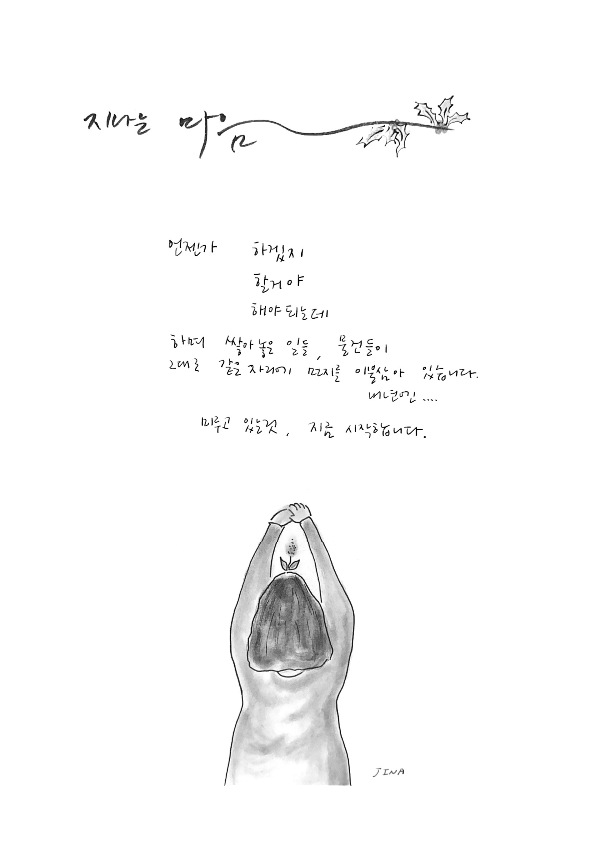 지나는 마음
언젠가 하겠지
할거야
해야되는데
하며 쌓아놓은 일들, 물건들이
그대로 같은자리에 먼지를 이불삼아 있습니다.
내년엔....
미루고 있는것, 지금 시작합니다.
JINA